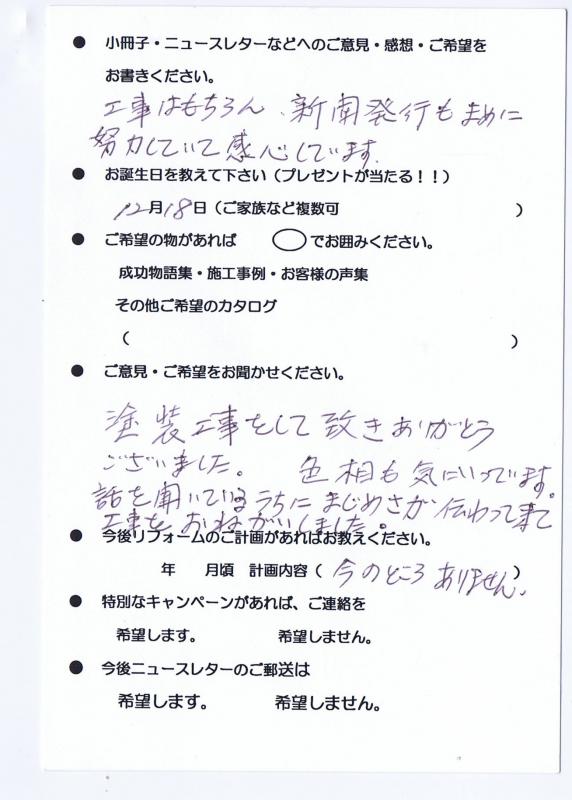 ● 小冊子・ニュースレターなどへのご意見・感想・ご希望を
お書きください。
工事はもちろん、新聞発行もまめに
努力していて感心しています。
● お誕生日を教えて下さい（プレゼントが当たる！！）
12月18日（ご家族など複数可 ）
● ご希望の物があれば ◯でお囲みください。
成功物語集・施工事例・お客様の声集
その他ご希望のカタログ
（ ）
● ご意見・ご希望をお聞かせください。
塗装工事をして致きありがとう
ございました。 色相も気にいっています。
話を聞いているうちにまじめさが伝わって来て
工事をおねがいしました。
● 今後リフォームのご計画があればお教えください。
年 月頃 計画内容（ 今のところありません。）
● 特別なキャンペーンがあれば、ご連絡を
希望します。 希望しません。
● 今後ニュースレターのご郵送は
希望します。 希望しません。